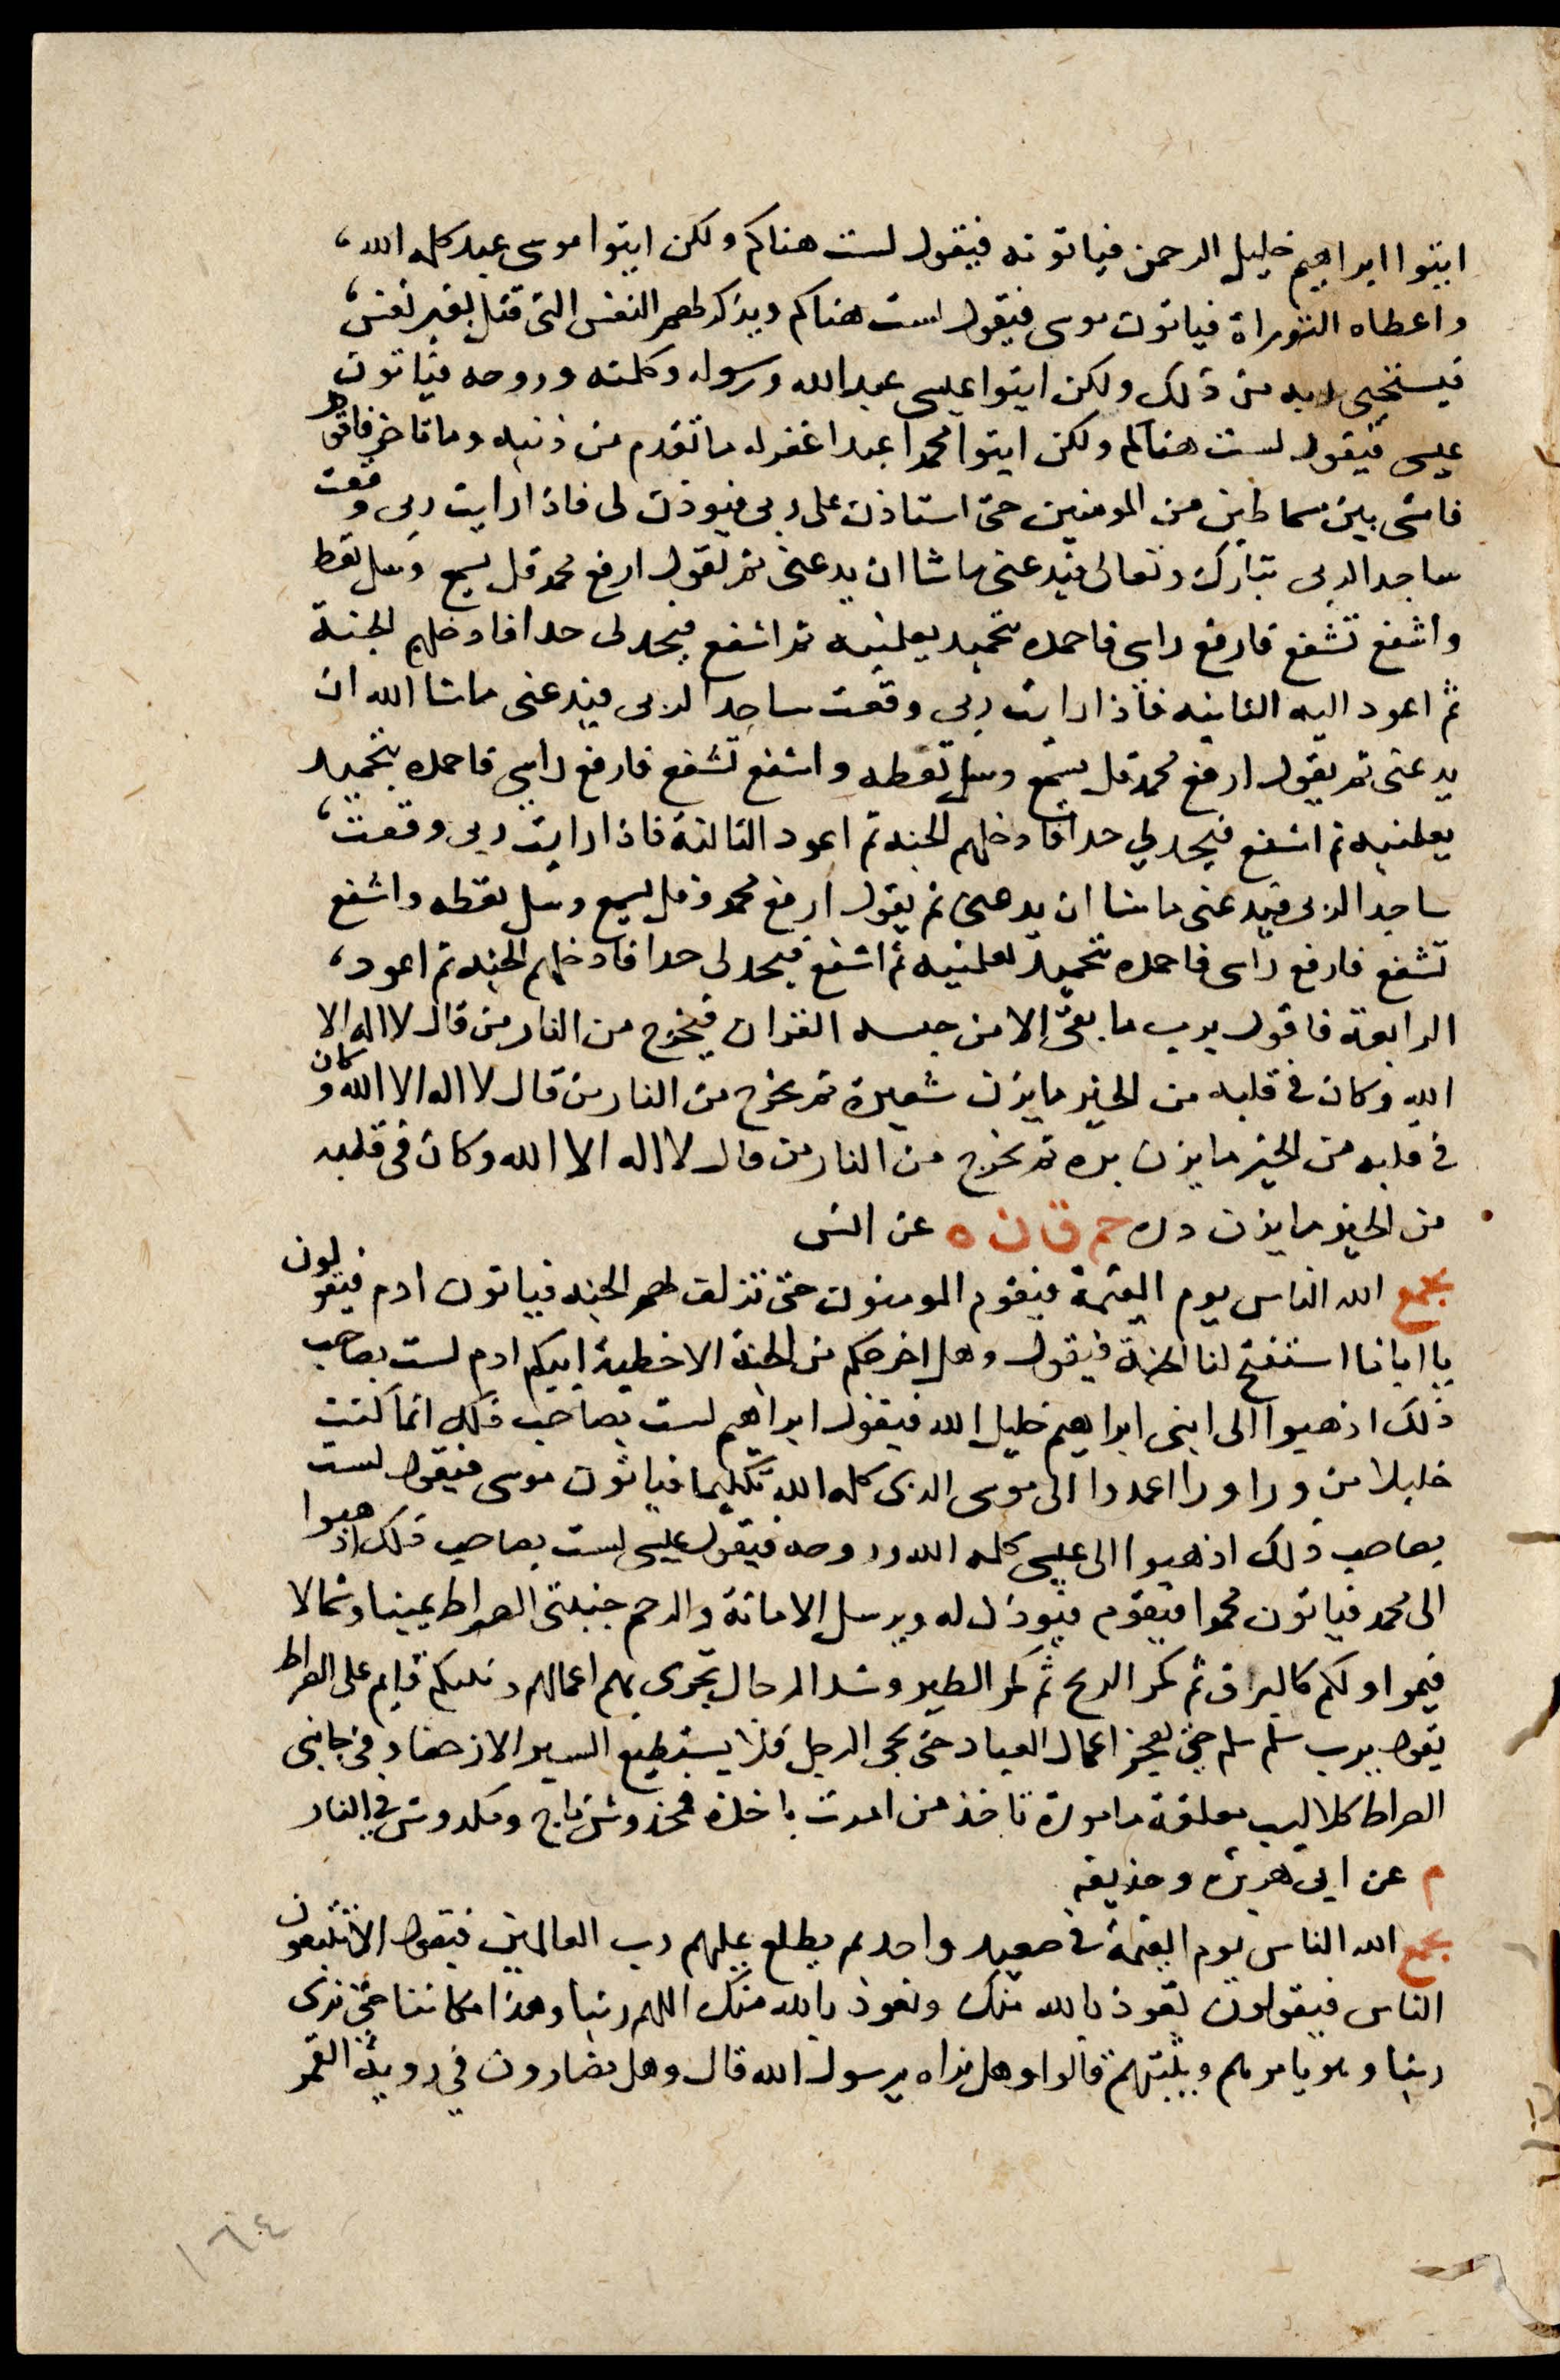 ايتوا ابراهيم خليل الرحمن فياتونه فيقول لست هناكم ولكن ايتوا موسى عبد كلمه الله،
واعطاه التوراة فياتون موسى فيقول لست هناكم ويذكر لهم النفس التى قتل بغير نفس،
فيستحيى ربه من ذلك ولكن ايتوا عيسى عبد الله ورسوله وكلمته وروحه فياتون
عيسى فيقول لست هناكم ولكن ايتوا محمدا عبدا غفر له ما تقدم من ذنبه وما تاخر فاقوم
فامشى بين سماطين من المومنين حتى استاذن على ربى فيوذن لى فاذا رايت ربى وقعت
ساجدا لربى تبارك وتعالى فيدعنى ما شا ان يدعنى ثم يقول ارفع محمد قل يسمع وسل تعط
واشفع تشفع فارفع راسى فاحمده بتحميد يعلمنيه ثم اشفع فيحد لى حدا فادخلهم الجنة
ثم اعود اليه الثانيه فاذا رايت ربى وقعت ساجدا لربى فيدعنى ما شا الله ان
يدعنى ثم يقول ارفع محمد قل يسمع وسل تعطه واشفع تشفع فارفع راسى فاحمده بتحميد
يعلمنيه ثم اشفع فيحد لي حدا فادخلهم الجنه ثم اعود الثالثة فاذا رايت ربى وقعت،
ساجدا لربى فيدعنى ما شا ان يدعنى ثم يقول ارفع محمد قل يسمع وسل تعطه واشفع
تشفع فارفع راسى فاحمده بتحميد يعلمنيه ثم اشفع فيحد لى حدا فادخلهم الجنه ثم اعود،
الرابعة فاقول يرب ما بقى الا من حبسه القران فيخرج من النار من قال لا اله الا
الله وكان فى قلبه من الخير ما يزن شعيرة ثم يخرج من النار من قال لا اله الا الله وكان
فى قلبه من الخير ما يزن بره ثم يخرج من النار من قال لا اله الا الله وكان فى قلبه
من الخير ما يزن دره حم ق ن ه عن انس
يجمع الله الناس يوم القيمة فيقوم المومنون حتى تزلف لهم الجنه فياتون ادم فيقولون
يا ابانا استفتح لنا الجنة فيقول وهل اخرجكم من الجنة الا خطية ابيكم ادم لست بصاحب
ذلك اذهبوا الى ابنى ابراهيم خليل الله فيقول ابراهيم لست بصاحب ذلك انما كنت
خليلا من ورا ورا اعمدوا الى موسى الذى كلمه الله تكليما فياتون موسى فيقول لست
بصاحب ذلك اذهبوا الى عيسى كلمه الله وروحه فيقول عيسى لست بصاحب ذلك اذهبوا
الى محمد فياتون محمدا فيقوم فيوذن له ويرسل الامانة والرحم جنبتى الصراط يمينا وشمالا
فيمر اولكم كالبراق ثم كمر الريح ثم كمر الطير وشد الرحال تجرى بهم اعمالهم ونبيكم قايم على الصراط
يقول يرب سلم سلم حتى يعجز اعمال العباد حتى يجى الرجل فلا يستطيع السير الا زحفا وفى جانبى
الصراط كلاليب معلقة مامورة تاخذ من امرت باخذه فمخدوش ناج ومكدوش فى النار
م عن ابى هريره وحذيفه
يجمع الله الناس يوم القيمة فى صعيد واحد ثم يطلع عليهم رب العالمين فيقول الا تتبعون
الناس فيقولون نعوذ بالله منك ونعوذ بالله منك اللهم ربنا وهذا مكاننا حتى نرى
ربنا وهو يامرهم ويثبتهم قالوا وهل نراه يرسول الله قال وهل تضارون في روية القمر
١٦٤